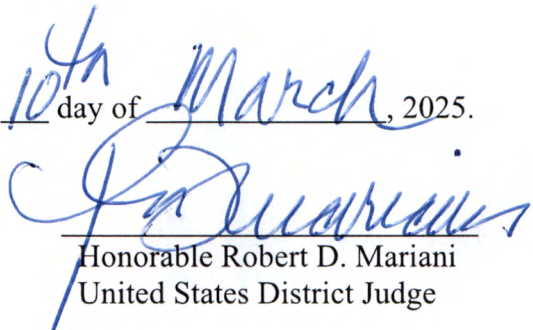 10th day of March, 2025.
Honorable Robert D. Mariani
United States District Judge